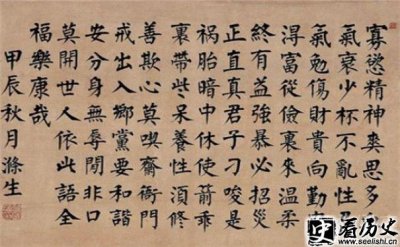 寡慾精神爽思多
氣衰少杯不亂性
氣勉傷財貴向勤
淂富從儉裏來溫柔
終有益強暴必招災
正直真君子刁唆是
禍胎暗中休使箭乖
裏帶些呆養性須修
善欺心莫喫齋衙門
戒出入鄉黨要和諧
安分身無辱閒非口
莫開世人依此語全
福樂康哉
甲辰秋月滌生
看历史
www.seelishi.cn